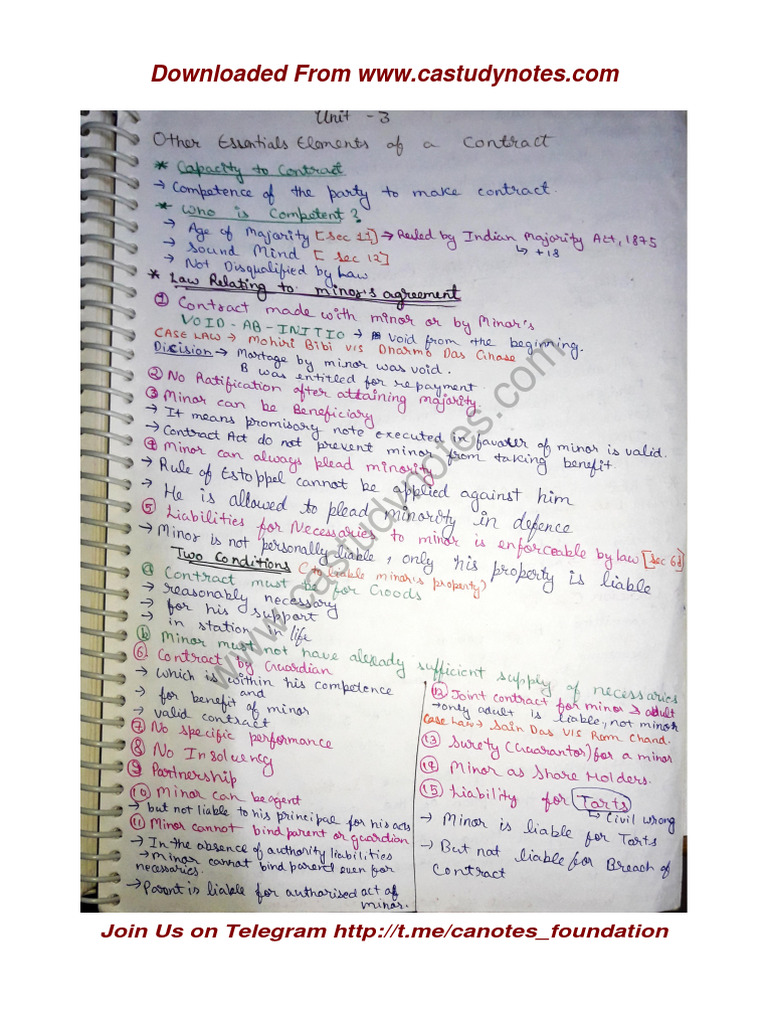 Downloaded From www.castudynotes.com
Unit - 3
Other Essentials Elements of a Contract
* Capacity to Contract
→ Competence of the party to make contract.
* Who is Competent?
→ Age of Majority [sec 11] → Ruled by Indian Majority Act, 1875
↳ +18
→ Sound Mind [sec 12]
→ Not Disqualified by Law
* Law Relating to minor's agreement
① Contract made with minor or by Minor's
VOID-AB-INITIO → void from the beginning.
CASE LAW → Mohiri Bibi v/s Dharmo Das Ghose
Dicision → Mortage by minor was void.
B was entitled for repayment.
② No Ratification after attaining majority.
③ Minor can be Beneficiary
→ It means promisory note executed in favour of minor is valid.
→ Contract Act do not prevent minor from taking benefit.
④ Minor can always plead minority
→ Rule of Estoppel cannot be applied against him
→ He is allowed to plead minority in defence
⑤ Liabilities for Necessaries to minor is enforceable by law [sec 68]
→ Minor is not personally liable, only his property is liable
Two Conditions (to liable minor's property)
ⓐ Contract must be for Goods
→ reasonably necessary
→ for his support
→ in station in life
ⓑ Minor must not have already sufficient supply of necessaries
⑥ Contract by Guardian
→ which is within his competence
and
→ for benefit of minor
→ valid contract
⑦ No specific performance
⑧ No Insolvency
⑨ Partnership
⑩ Minor can be agent
→ but not liable to his principal for his acts
⑪ Minor cannot bind parent or guardian
→ In the absence of authority liabilities
→ minor cannot bind parent even for
necessaries.
→ Parent is liable for authorised act of
minor.
⑫ Joint contract for minor & adult
→ only adult is liable, not minor
Case Law → Sain Das V/s Ram Chand.
⑬ Surety (Guarantor) for a minor
⑭ Minor as Share Holders.
⑮ Liability for Tarts
↳ Civil wrong
→ Minor is liable for Tarts
→ But not liable for Breach of
Contract
www.castudynotes.com
Join Us on Telegram http://t.me/canotes_foundation